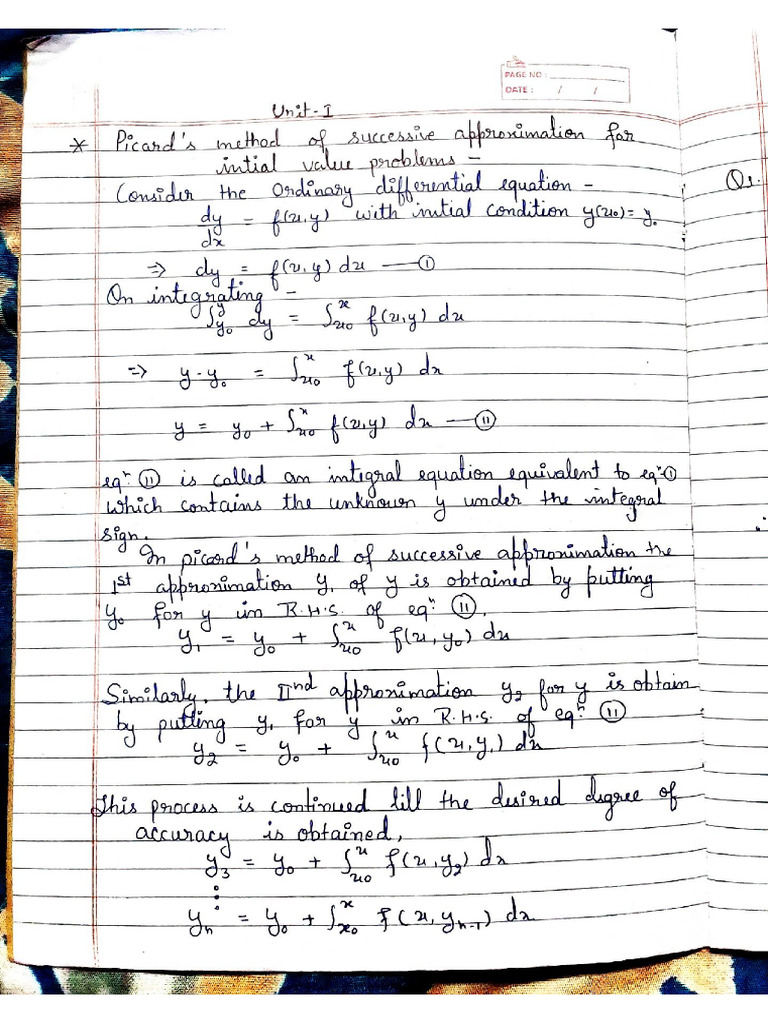 PAGE NO :
DATE : / /
Unit - I
* Picard's method of successive approximation for
intial value problems -
Consider the Ordinary differential equation -
dy/dx = f(x,y) with initial condition y(x₀) = y₀
Q1.
⇒ dy = f(x,y) dx — (I)
On integrating -
∫_{y₀}^{y} dy = ∫_{x₀}^{x} f(x,y) dx
⇒ y - y₀ = ∫_{x₀}^{x} f(x,y) dx
y = y₀ + ∫_{x₀}^{x} f(x,y) dx — (II)
eqⁿ (II) is called an integral equation equivalent to eqⁿ (I)
which contains the unknown y under the integral
sign.
In picard's method of successive approximation the
1st approximation y₁ of y is obtained by putting
y₀ for y in R.H.S. of eqⁿ (II),
y₁ = y₀ + ∫_{x₀}^{x} f(x,y₀) dx
Similarly, the IInd approximation y₂ for y is obtain
by putting y₁ for y in R.H.S. of eqⁿ (II)
y₂ = y₀ + ∫_{x₀}^{x} f(x,y₁) dx
This process is continued till the desired degree of
accuracy is obtained,
y₃ = y₀ + ∫_{x₀}^{x} f(x,y₂) dx
⋮
yₙ = y₀ + ∫_{x₀}^{x} f(x,yₙ₋₁) dx